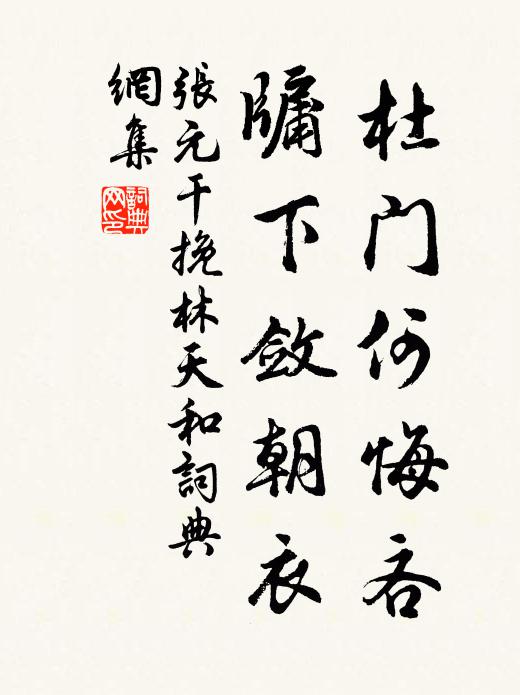 杜門何悔吝
牖下斂朝衣
張元干挽林天和詞典
網集
詞典
网印